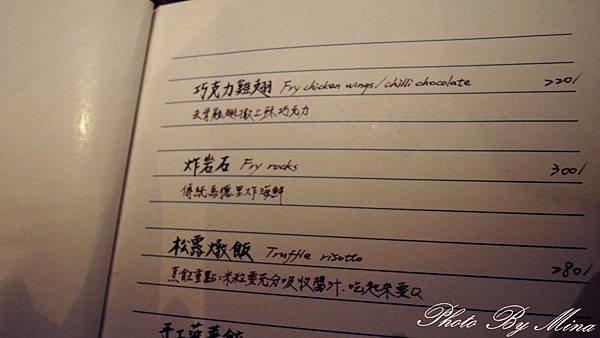 巧克力雞翅 Fry chicken wings/chilli chocolate 220/
去骨雞翅撒上酥巧克力
炸岩石 Fry rocks 300/
傳統馬德里炸海鮮
松露燉飯 Truffle risotto 280/
烹飪重點:米粒要充分吸收醬汁.吃起來要Q
手工菠菜餃
Photo By Mina